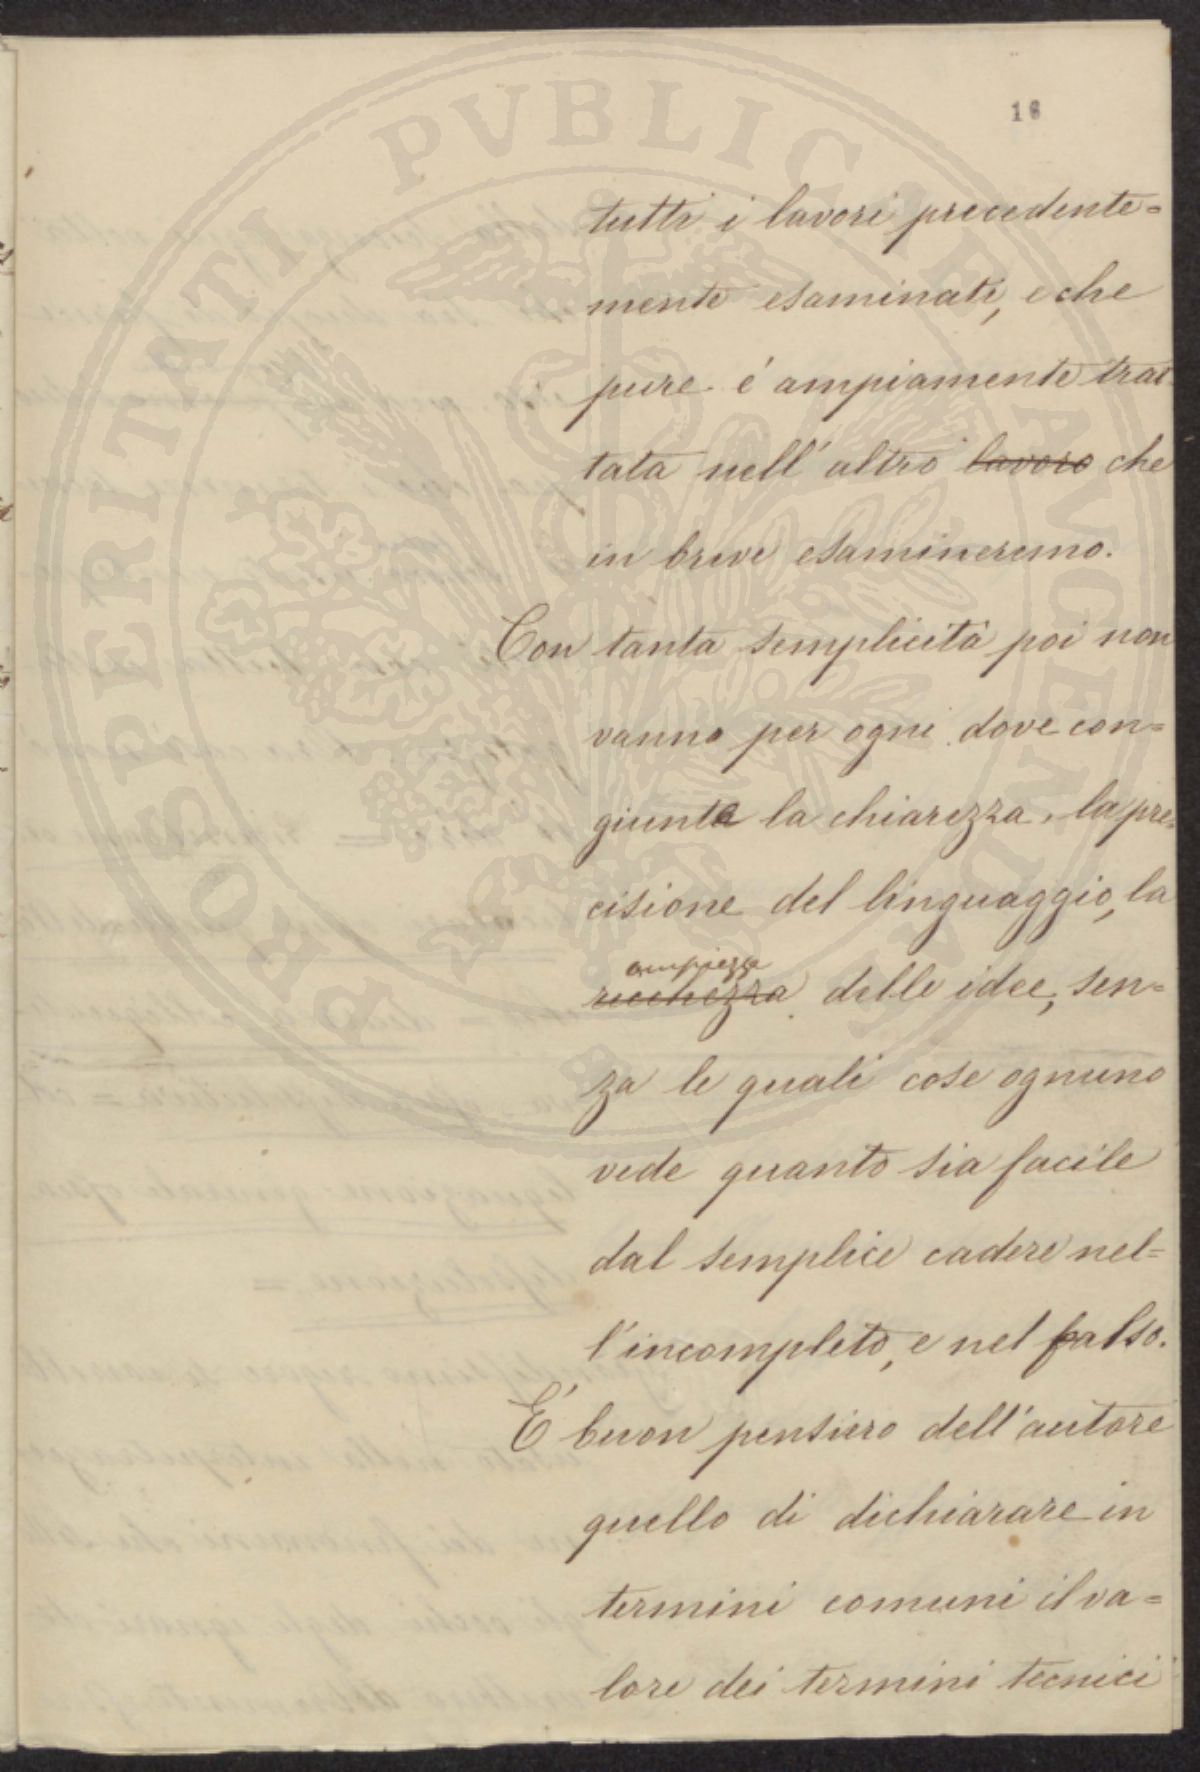 PROSPERITATI PVBLICAE AVGENDAE
16
tutti i lavori precedente=
mente esaminati, e che
pure é ampiamente trat
tata nell'altro lavoro che
in breve esamineremo.
Con tanta semplicità poi non
vanno per ogni dove con=
giunte la chiarezza, la pre=
cisione del linguaggio, la
ampiezza
ricchezza delle idee, sen=
za le quali cose ognuno
vede quanto sia facile
dal semplice cadere nel=
l'incompleto, e nel falso.
É buon pensiero dell'autore
quello di dichiarare in
termini comuni il va=
lore dei termini tecnici